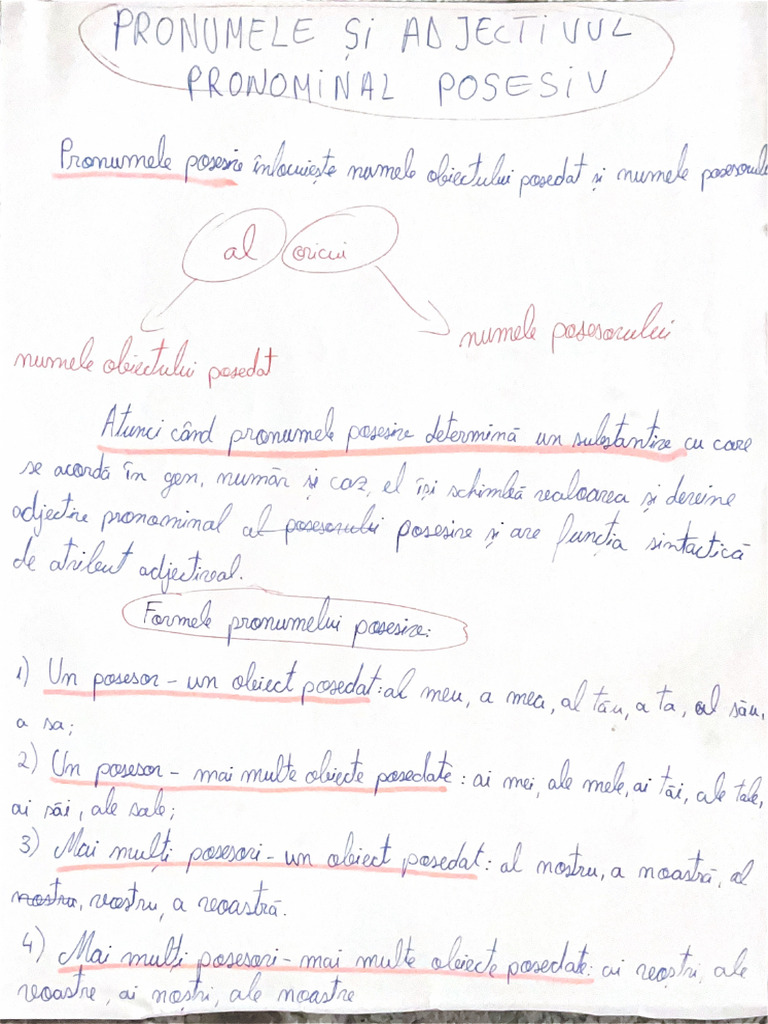 PRONUMELE ȘI ADJECTIVUL
PRONOMINAL POSESIV
Pronumele posesiv înlocuiește numele obiectului posedat și numele posesorului
al oricui
numele posesorului
numele obiectului posedat
Atunci când pronumele posesiv determină un substantiv cu care
se acordă în gen, număr și caz, el își schimbă valoarea și devine
adjectiv pronominal al posesorului posesiv și are funcția sintactică
de atribut adjectival.
Formele pronumelui posesiv:
1) Un posesor - un obiect posedat: al meu, a mea, al tău, a ta, al său,
a sa;
2) Un posesor - mai multe obiecte posedate: ai mei, ale mele, ai tăi, ale tale,
ai săi, ale sale;
3) Mai mulți posesori - un obiect posedat: al nostru, a noastră, al
nostru, vostru, a voastră.
4) Mai mulți posesori - mai multe obiecte posedate: ai voștri, ale
voastre, ai noștri, ale noastre